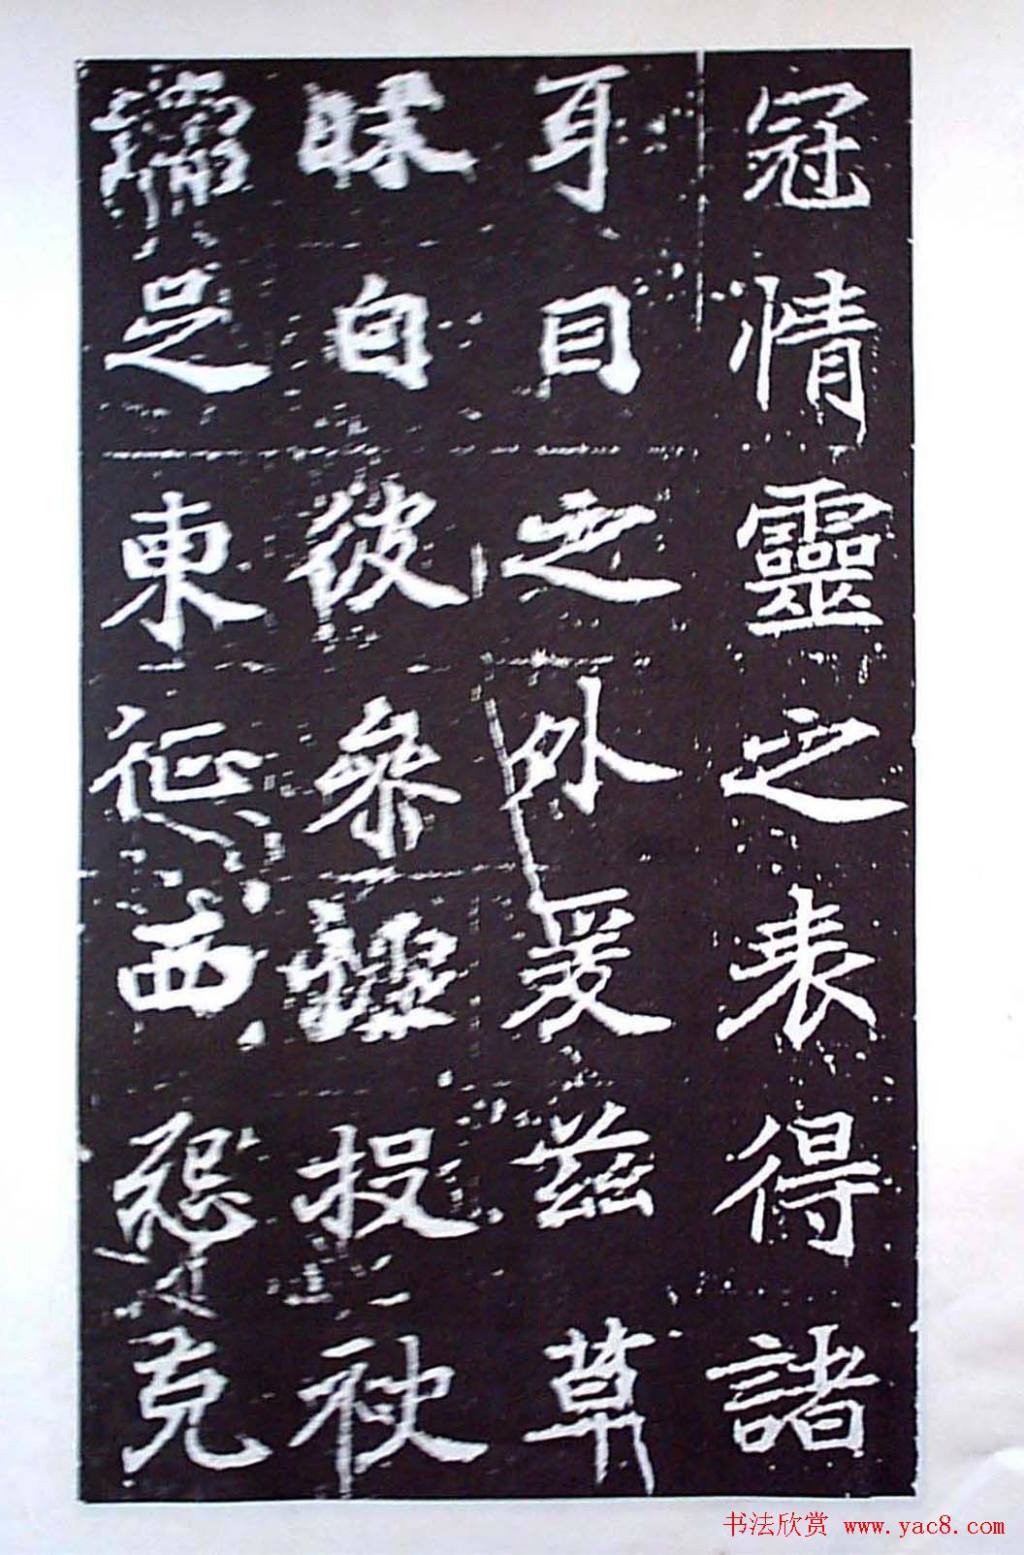 冠情靈之表得諸
耳目之外爰茲草
昧自彼叅墟投袂
讎足東征西怨克
书法欣赏 www.yac8.com